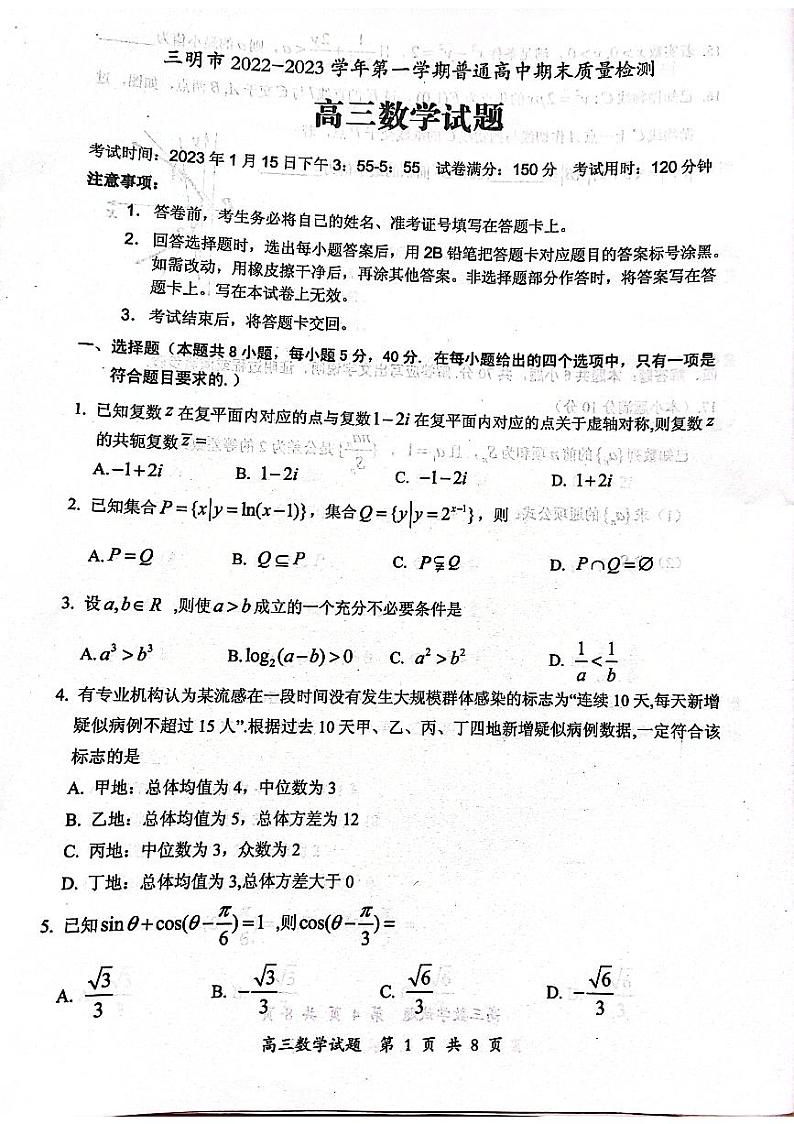 三明市 2022-2023 学年第一学期普通高中期末质量检测
高三数学试题
考试时间：2023 年 1 月 15 日下午 3：55-5：55 试卷满分：150 分 考试用时：120 分钟
注意事项：
1. 答卷前，考生务必将自己的姓名、准考证号填写在答题卡上。
2. 回答选择题时，选出每小题答案后，用 2B 铅笔把答题卡对应题目的答案标号涂黑。
如需改动，用橡皮擦干净后，再涂其他答案。非选择题部分作答时，将答案写在答
题卡上。写在本试卷上无效。
3. 考试结束后，将答题卡交回。
一、选择题（本题共 8 小题，每小题 5 分，40 分．在每小题给出的四个选项中，只有一项是
符合题目要求的.）
1. 已知复数 z 在复平面内对应的点与复数 1−2i 在复平面内对应的点关于虚轴对称,则复数 z
的共轭复数 z̅ =
A. −1+2i B. 1−2i C. −1−2i D. 1+2i
2. 已知集合 P={x|y=ln(x−1)}，集合 Q={y|y=2^{x−1}}，则
A. P=Q B. Q⊆P C. P⫋Q D. P∩Q=∅
3. 设 a,b∈R ,则使 a>b 成立的一个充分不必要条件是
A. a³>b³ B. log₂(a−b)>0 C. a²>b² D. 1/a<1/b
4. 有专业机构认为某流感在一段时间没有发生大规模群体感染的标志为“连续 10 天,每天新增
疑似病例不超过 15 人”.根据过去 10 天甲、乙、丙、丁四地新增疑似病例数据,一定符合该
标志的是
A. 甲地：总体均值为 4，中位数为 3
B. 乙地：总体均值为 5，总体方差为 12
C. 丙地：中位数为 3，众数为 2
D. 丁地：总体均值为 3,总体方差大于 0
5. 已知 sinθ+cos(θ−π/6)=1 ,则 cos(θ−π/3)=
A. √3/3 B. −√3/3 C. √6/3 D. −√6/3
高三数学试题 第 1 页 共 8 页